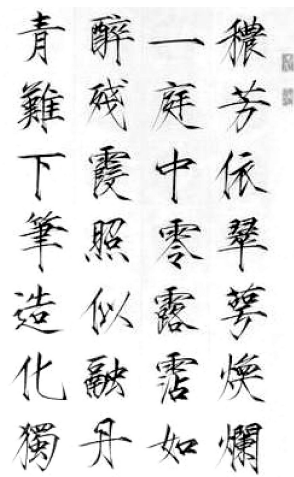 穠芳依翠萼煥爛
一庭中零露霑如
醉殘霞照似融丹
青難下筆造化獨